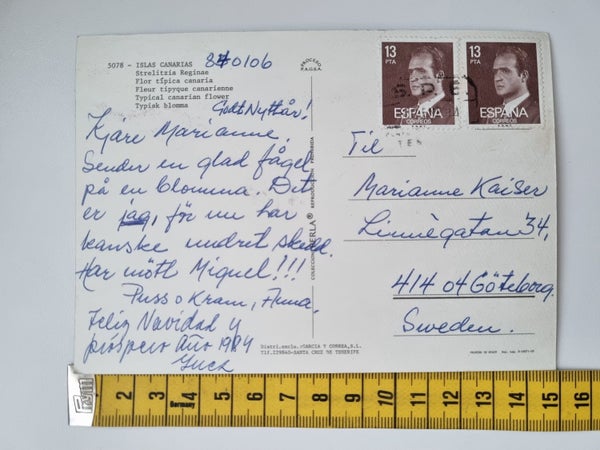 5078 - ISLAS CANARIAS
Strelitzia Reginae
Flor típica canaria
Fleur tipyque canarienne
Typical canarian flower
Typisk blomma
840106
Gott Nyttår!
Kjære Marianne.
Sender en glad fågel
på en blomma. Det
er jag, för nu har
kanske undret skedd.
Har mött Miguel!!!
Puss o Kram, Anna.
Feliz Navidad y
prospero Año 1984
PROCESO
REPRODUCCION PROHIBIDA
COLECCION PERLA®
Distri.exclu. GARCIA Y CORREA,S.L.
TLF.229840-SANTA CRUZ DE TENERIFE
13
PTA
ESPAÑA
CORREOS
13
PTA
ESPAÑA
CORREOS
Til
Marianne Kaiser
Linnégatan 34,
414 04 Göteborg.
Sweden.
PRINTED IN SPAIN
1 2 3 4 5 6 7 8 9 10 11 12 13 14 15 16
Germany